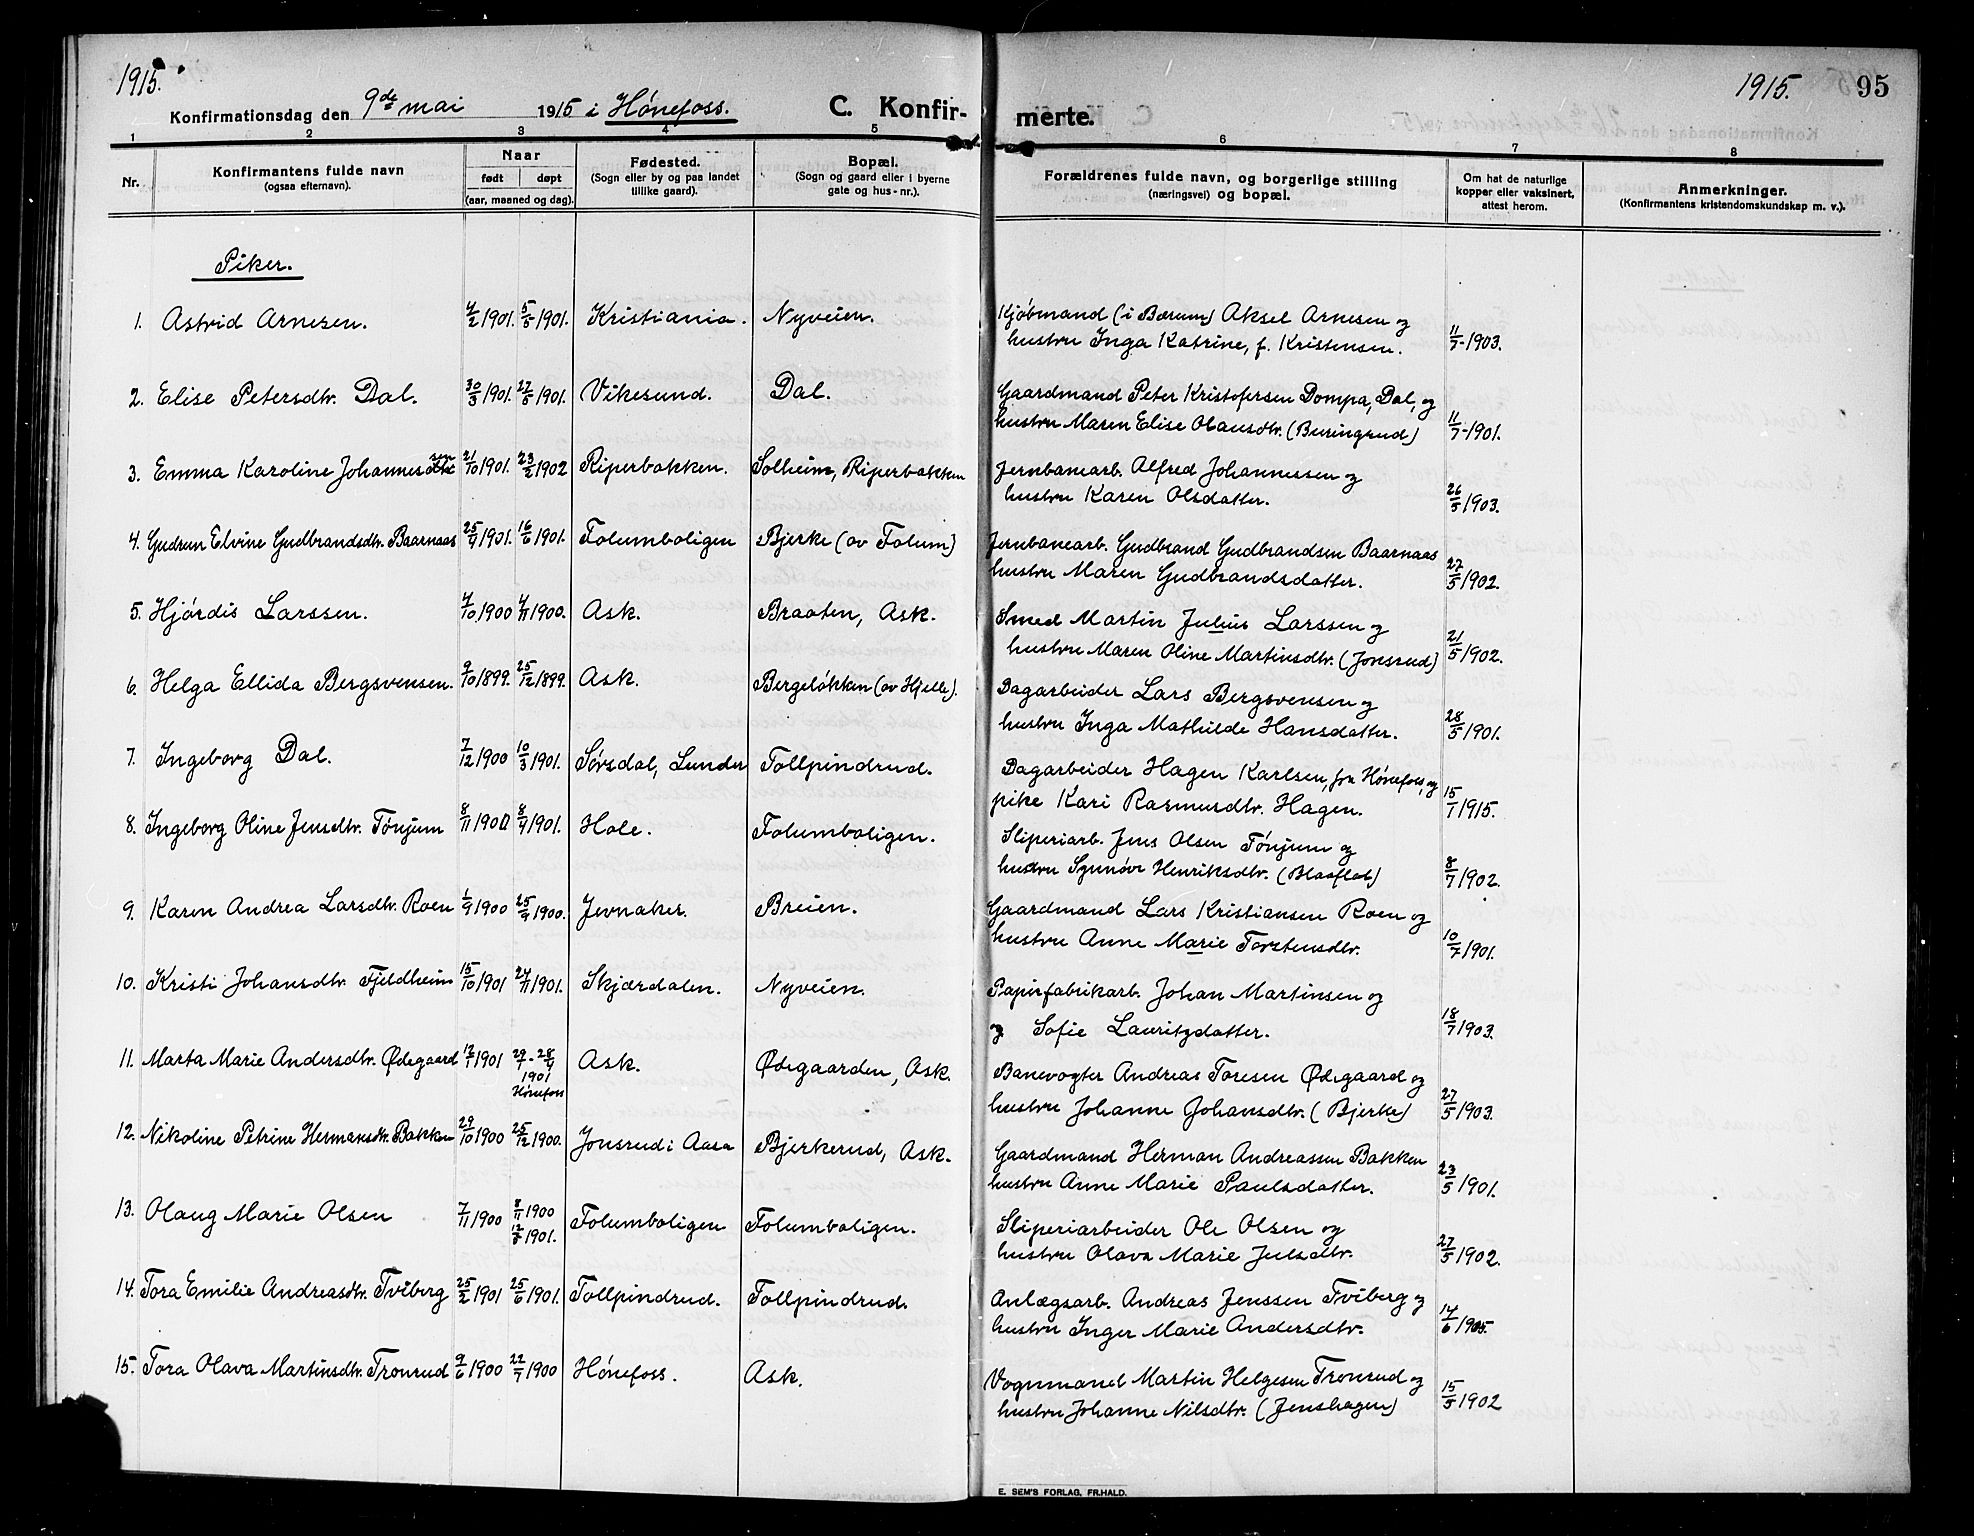 1915.
Konfirmationsdag den 9de mai 1915 i Hönefoss.
C. Konfir-
merte.
1915. 95
1 2 3 4 5 6 7 8
Nr.
Konfirmantens fulde navn
(ogsaa efternavn).
Naar
født døpt
(aar, maaned og dag).
Fødested.
(Sogn eller by og paa landet
tillike gaard).
Bopæl.
(Sogn og gaard eller i byerne
gate og hus-nr.).
Forældrenes fulde navn, og borgerlige stilling
(næringsvei) og bopæl.
Om hat de naturlige
kopper eller vaksinert,
attest herom.
Anmerkninger.
(Konfirmantens kristendomskundskap m. v.).
Piker.
1. Astrid Arnesen. 4/2 1901. 5/5 1901. Kristiania. Nyveien. Kjöbmand (i Bærum) Aksel Arnesen og
hustru Inga Katrine, f. Kristensen. 11/7-1903.
2. Elise Petersdtr. Dal. 30/3 1901. 27/5 1901. Vikesund. Dal. Gaardmand Peter Kristofersen Dompa, Dal, og
hustru Maren Elise Olausdtr. (Buringrud) 11/7-1901.
3. Emma Karoline Johannessen 21/10 1901. 23/2 1902 Riperbakken. Solheim, Riperbakken Jernbanearb. Alfred Johannessen og
hustru Karen Olsdatter. 26/5 1903.
4. Gudrun Elvine Gudbrandsdtr. Baarnaas 25/4 1901. 16/6 1901. Folumboligen Bjerke (av Folum) Jernbanearb. Gudbrand Gudbrandsen Baarnaas
hustru Maren Gudbrandsdatter. 27/5 1902.
5. Hjördis Larssen. 4/10 1900 4/11 1900. Ask. Braaten, Ask. Smed Martin Julius Larssen og
hustru Maren Oline Martinsdtr. (Jonsrud) 21/5 1902.
6. Helga Ellida Bergsvensen. 9/10 1899. 25/12 1899. Ask. Bergelökken (av Hjelle). Dagarbeider Lars Bergsvensen og
hustru Inga Mathilde Hansdatter. 28/5 1901.
7. Ingeborg Dal. 7/12 1900 10/3 1901. Sörsdal, Lunder Tollpindrud. Dagarbeider Hagen Karlsen, fra Hönefoss, og
pike Kari Rasmusdtr. Hagen. 15/1 1915.
8. Ingeborg Oline Jensdtr. Tönjum 8/11 1900 8/4 1901. Hole. Folumboligen. Sliperiarb. Jens Olsen Tönjum og
hustru Synnöve Henriksdtr. (Blaaflat) 8/7 1902.
9. Karen Andrea Larsdtr. Roen 1/9 1900 25/9 1900. Jevnaker. Breien. Gaardmand Lars Kristiansen Roen og
hustru Anne Marie Torstensdtr. 10/7 1901.
10. Kristi Johansdtr. Fjeldheim 15/10 1901 24/11 1901. Skjærdalen. Nyveien. Papirfabrikarb. Johan Martinsen og
og Sofie Lauritzdatter. 18/7 1903.
11. Marta Marie Andersdtr. Ødegaard 12/1 1901 29/1-28/4
1901
Hönefoss Ask. Ødegaarden, Ask. Banevogter Andreas Toresen Ødegaard og
hustru Johanne Johansdtr. (Bjerke) 27/5 1903.
12. Nikoline Petrine Hermansdtr. Bakken 29/10 1900 25/12 1900. Jonsrud i Aasa Bjerkerud, Ask. Gaardmand Herman Andreassen Bakken
hustru Anne Marie Paulsdatter. 23/5 1901.
13. Olaug Marie Olsen 7/11 1900 8/11 1900
12/5 1901. Folumboligen Folumboligen. Sliperiarbeider Ole Olsen og
hustru Olava Marie Julsdtr. 27/5 1902.
14. Tora Emilie Andreasdtr. Tviberg 25/2 1901 25/6 1901. Tollpindrud. Tollpindrud. Anlægsarb. Andreas Jenssen Tviberg og
hustru Inger Marie Andersdtr. 14/6 1905.
15. Tora Olava Martinsdtr. Tronrud 9/6 1900 22/7 1900 Hönefoss. Ask. Vognmand Martin Helgesen Tronrud og
hustru Johanne Nilsdtr. (Jenshagen) 15/5 1902
E. SEM'S FORLAG, FR.HALD.